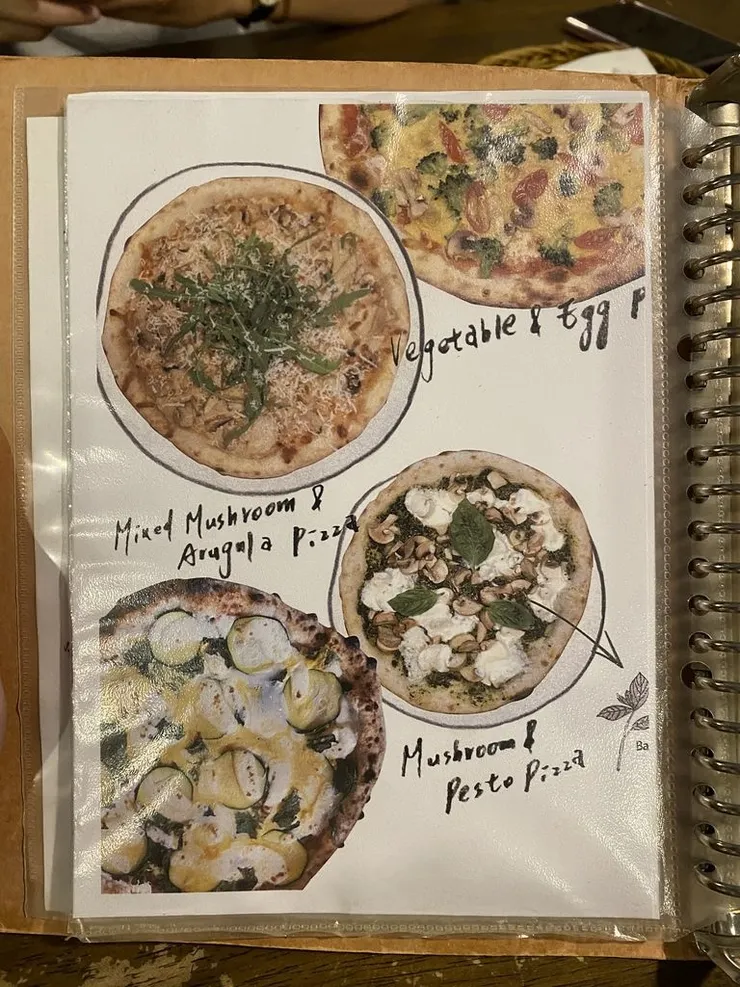 Vegetable & Egg P
Mixed Mushroom &
Arugula Pizza
Mushroom &
Pesto Pizza
Ba